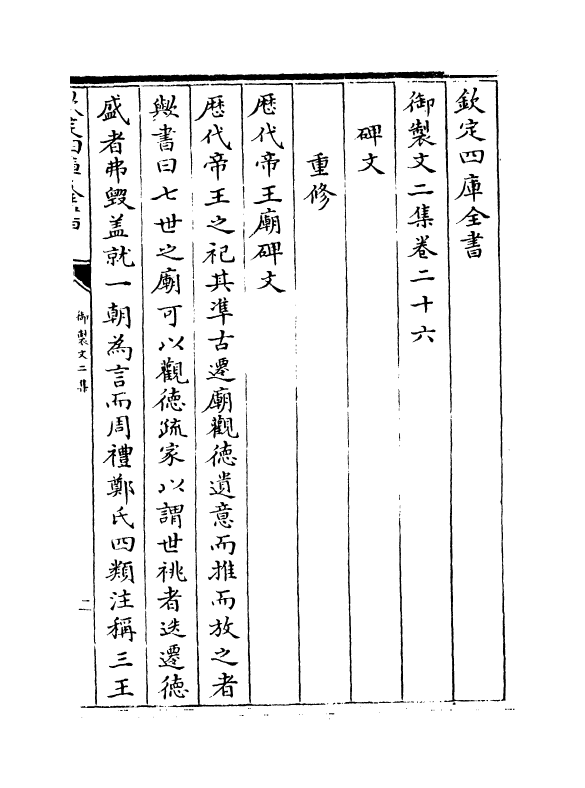 欽定四庫全書
御製文二集卷二十六
碑文
重修
歴代帝王廟碑文
歴代帝王之祀其凖古遷廟觀徳遺意而推而放之者
歟書曰七世之廟可以觀徳疏家以謂世祧者迭遷徳
盛者弗毀盖就一朝為言而周禮鄭氏四類注稱三王
御製文二集